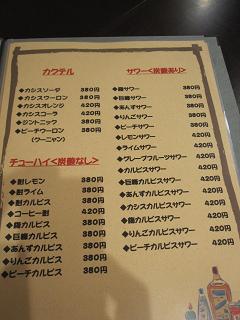 カクテル
◆カシスソーダ 380円
◆カシスウーロン 380円
◆カシスオレンジ 420円
◆カシスコーラ 420円
◆ジントニック 380円
◆ピーチウーロン 380円
(クーニャン)
チューハイ<炭酸なし>
◆酎レモン 380円
◆酎ライム 380円
◆酎カルピス 380円
◆コーヒー酎 420円
◆梅カルピス 380円
◆巨峰カルピス 380円
◆あんずカルピス 380円
◆りんごカルピス 380円
◆ピーチカルピス 380円
サワー<炭酸あり>
◆梅サワー 380円
◆巨峰サワー 380円
◆あんずサワー 380円
◆りんごサワー 380円
◆ピーチサワー 380円
◆レモンサワー 420円
◆ライムサワー 420円
◆グレープフルーツサワー 420円
◆カルピスサワー 420円
◆巨峰カルピスサワー 420円
◆あんずカルピスサワー 420円
◆カシスカルピスサワー 420円
◆梅カルピスサワー 420円
◆りんごカルピスサワー 420円
◆ピーチカルピスサワー 420円